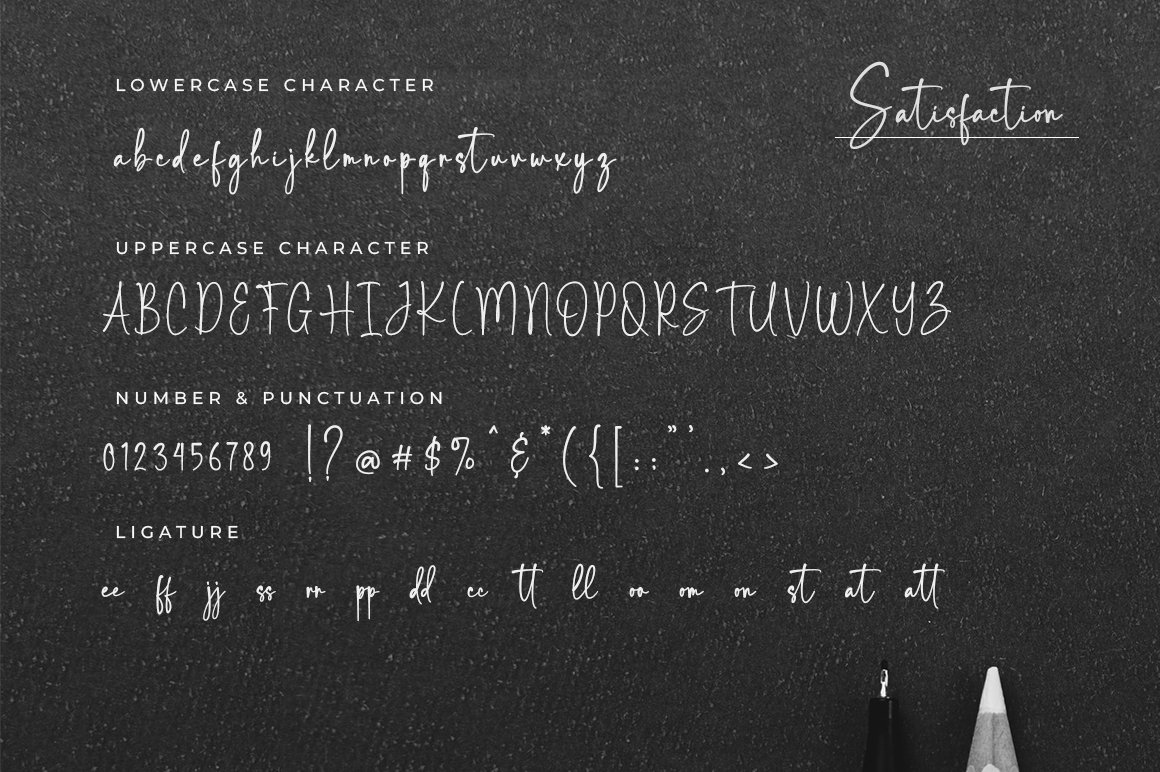 Satisfaction
LOWERCASE CHARACTER
abcdefghijklmnopqrstuvwxyz
UPPERCASE CHARACTER
ABCDEFGHIJKLMNOPQRSTUVWXYZ
NUMBER & PUNCTUATION
0123456789 !?@#$%^&*({[::"'.,<>
LIGATURE
ee ff jj ss rr pp dd cc tt ll oo om on st at att